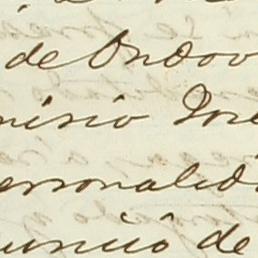 de Ondov
nisio José
ersonalid
unció de